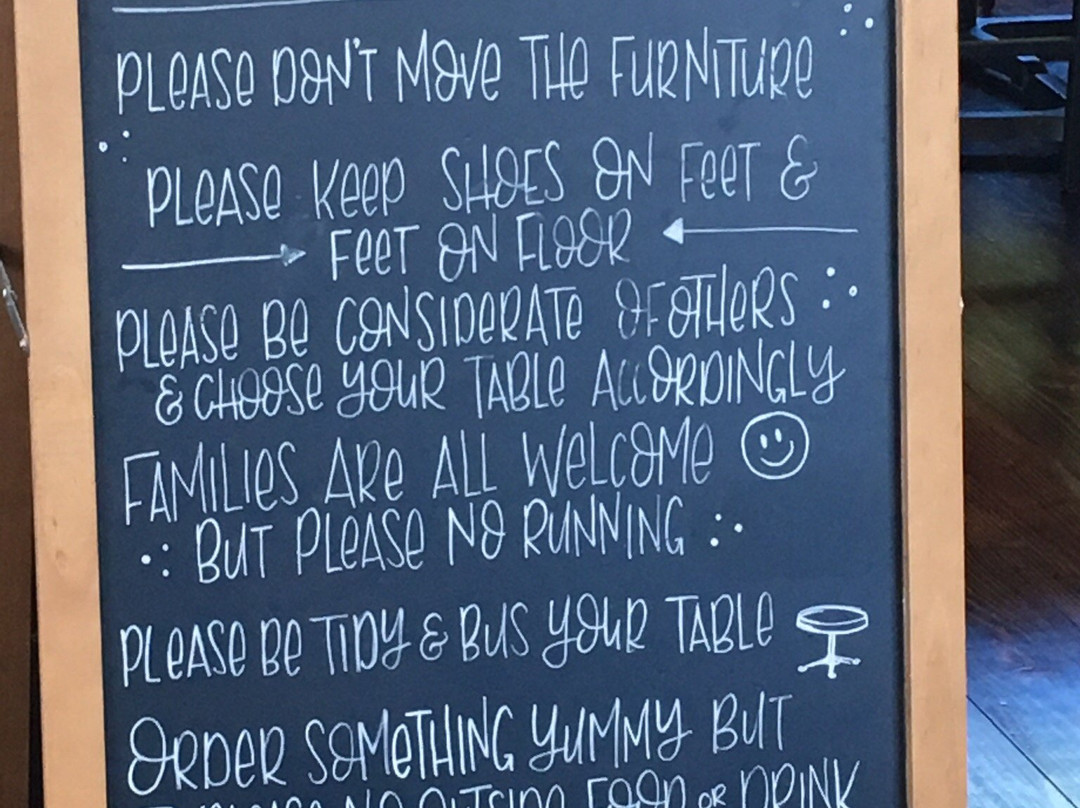 PLEASE DON'T MOVE THE FURNITURE
PLEASE KEEP SHOES ON FEET &
FEET ON FLOOR
PLEASE BE CONSIDERATE OF OTHERS
& CHOOSE YOUR TABLE ACCORDINGLY
FAMILIES ARE ALL WELCOME
BUT PLEASE NO RUNNING
PLEASE BE TIDY & BUS YOUR TABLE
ORDER SOMETHING YUMMY BUT
PLEASE NO OUTSIDE FOOD OR DRINK